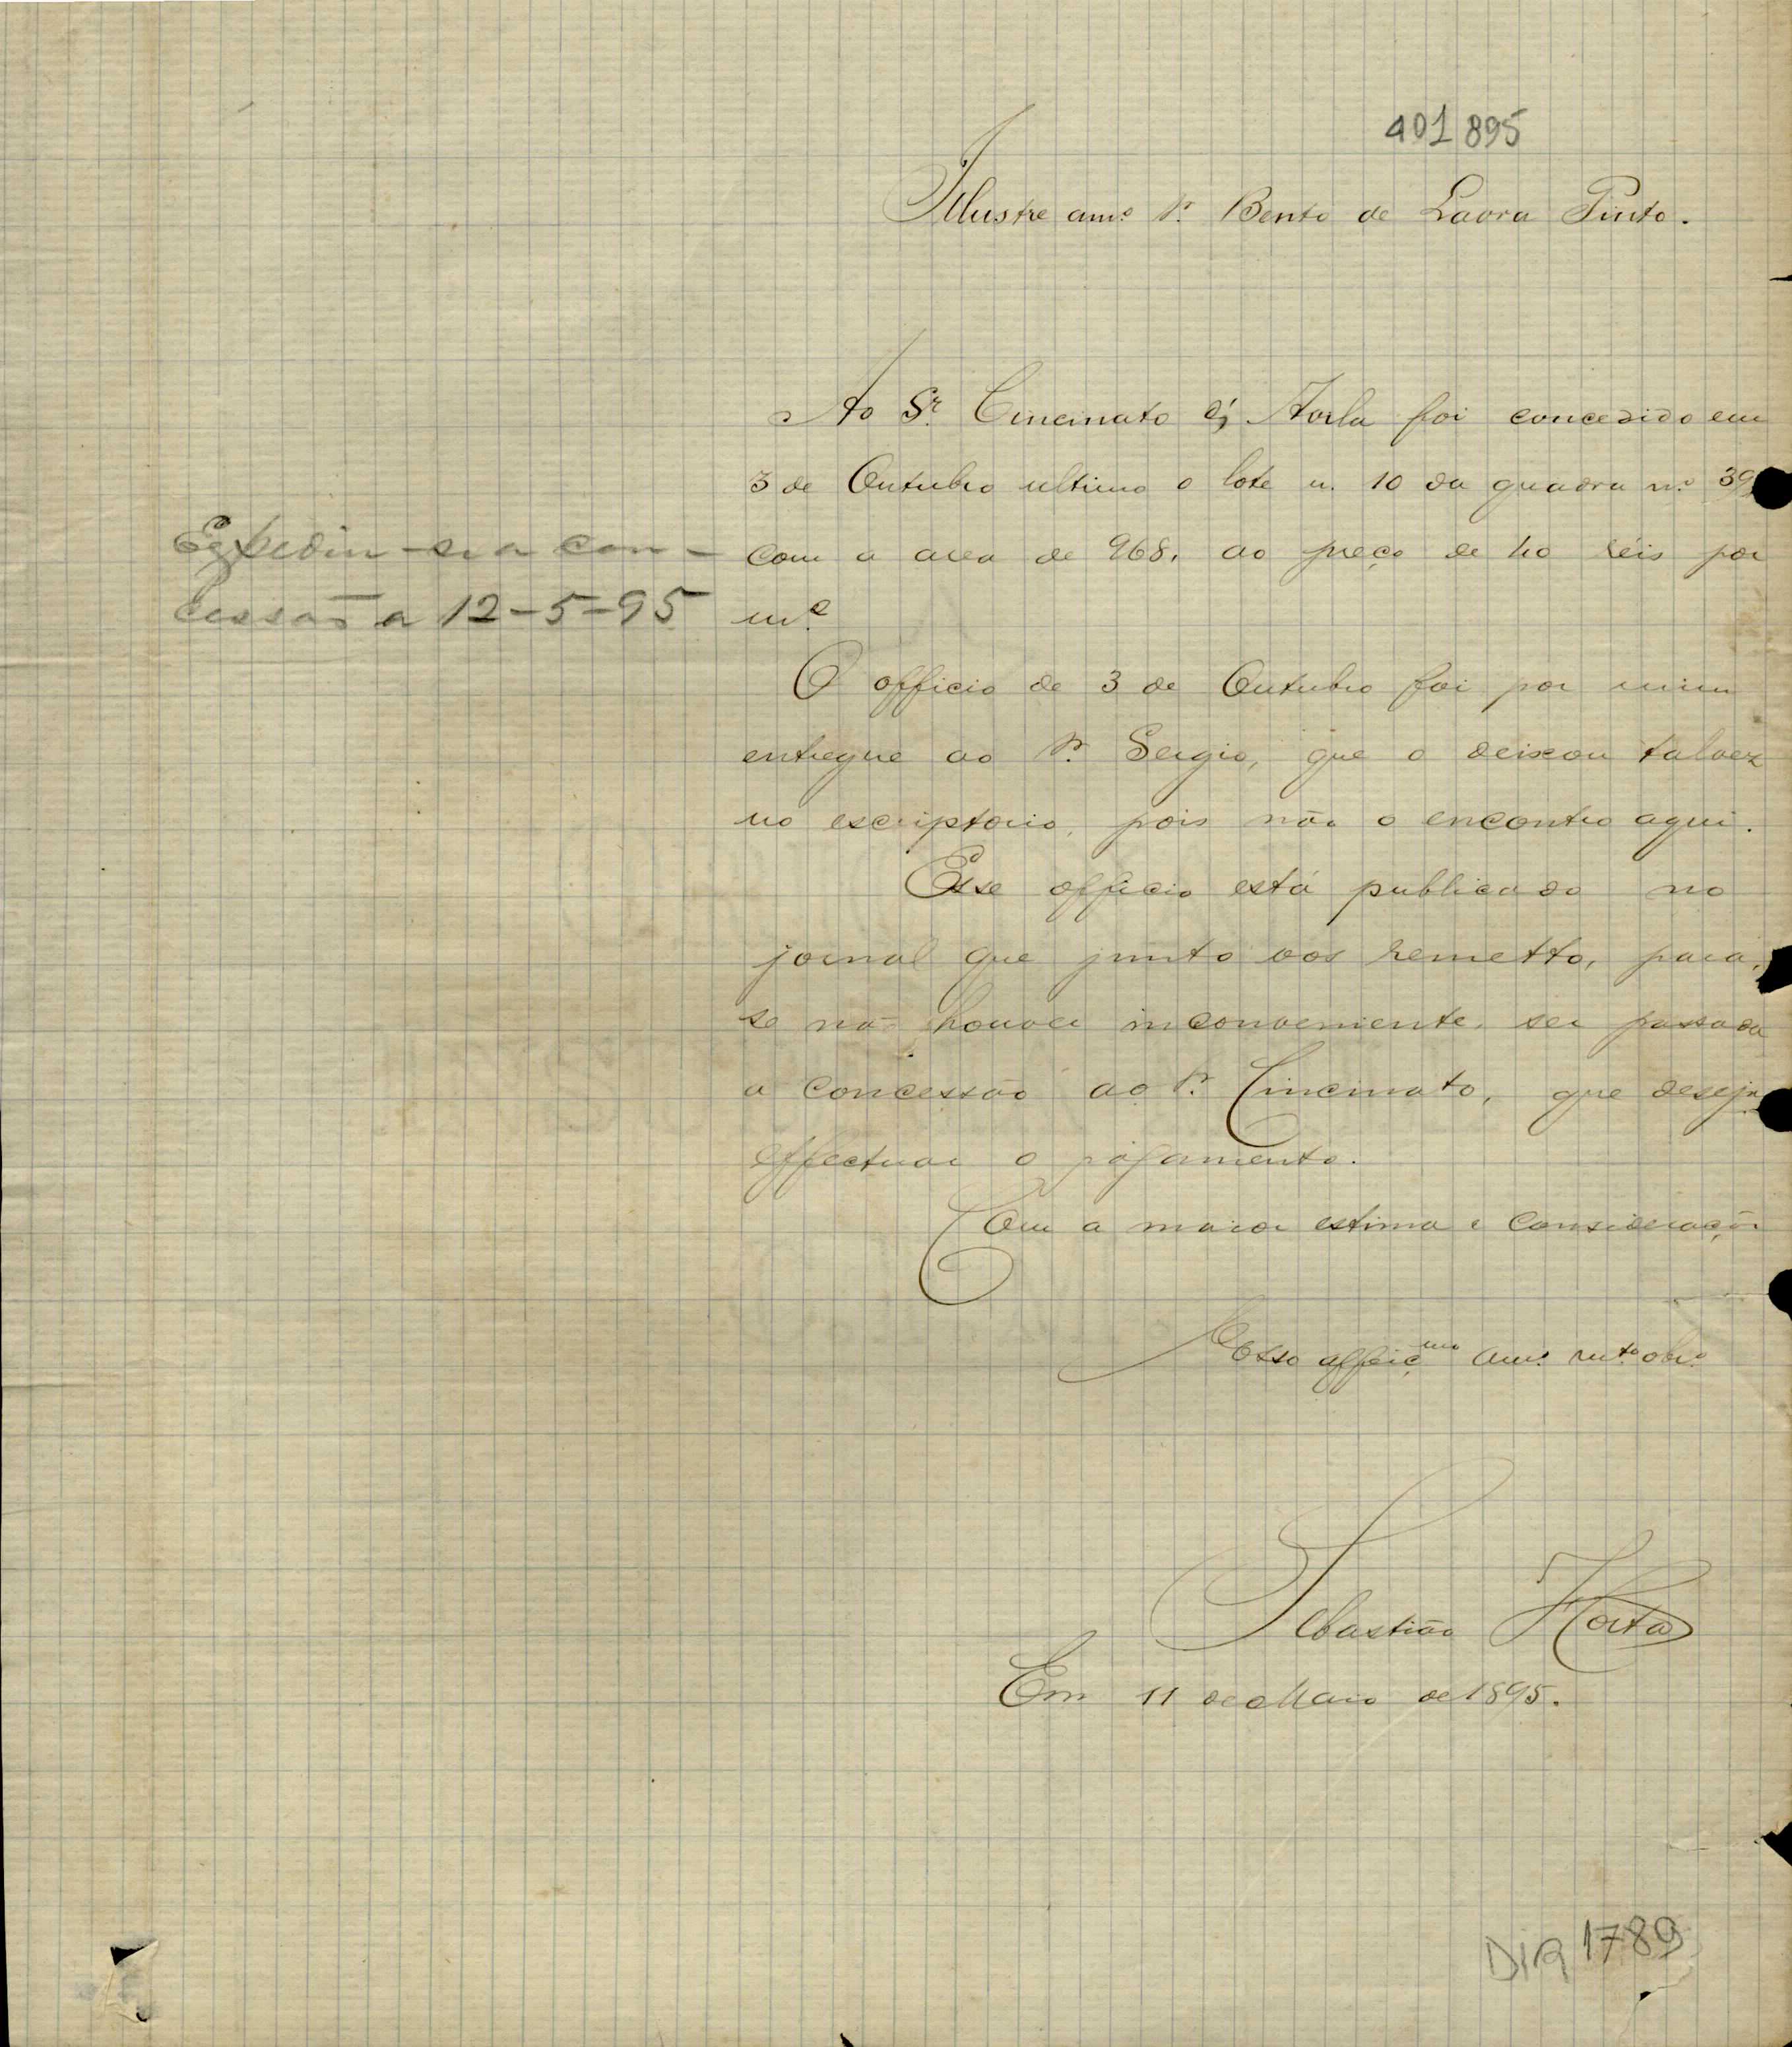 401 895
Illustre amº Sr. Bento de Lavra Pinto.
Ao Sr. Cincinato foi concedido em
3 de Outubro ultimo o lote n. 10 da quadra nº 39,
Expediu-se a con-
cessão a 12-5-95
com a area de 968, ao preço de 40 réis por
m.²
O officio de 3 de Outubro foi por mim
entregue ao Sr. Sergio, que o deixou talvez
no escriptorio, pois não o encontro aqui.
Esse officio está publicado no
jornal que junto vos remetto, para,
se não houver inconveniente, ser passada
a concessão ao Sr. Cincinato, que deseja
effectuar o pagamento.
Com a maior estima e consideração
Vosso affeiç.mo amº mto obrº
Sebastião Horta
Em 11 de Maio de 1895.
DIQ 1789